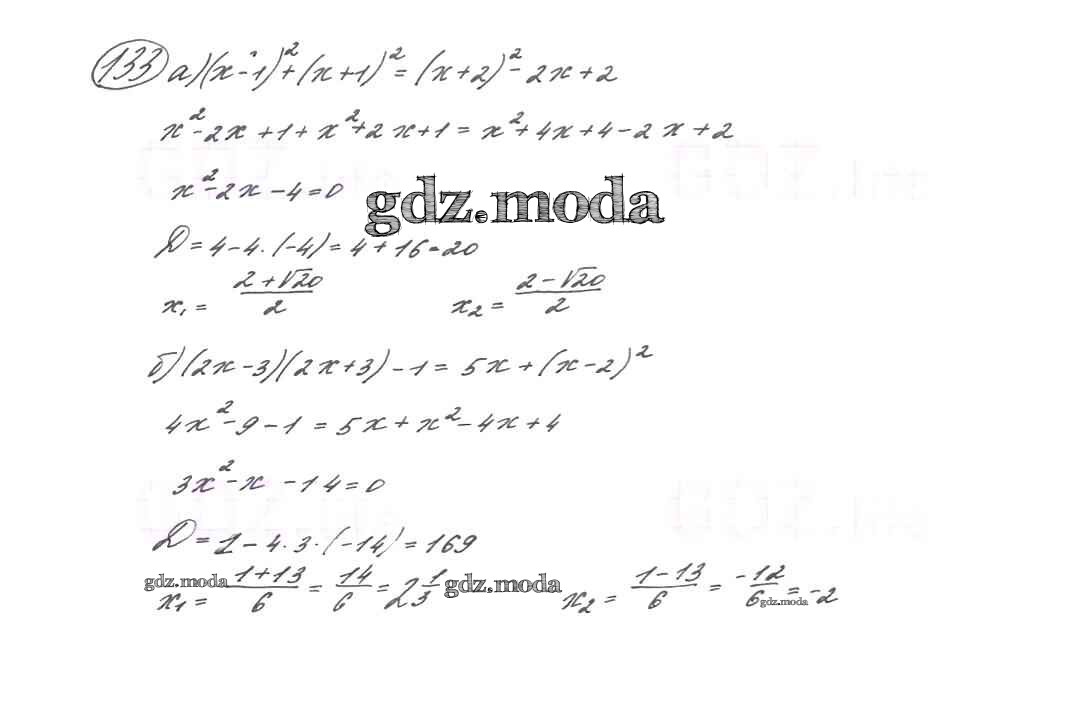 133 а) (x-1)² + (x+1)² = (x+2)² - 2x + 2
x² - 2x + 1 + x² + 2x + 1 = x² + 4x + 4 - 2x + 2
x² - 2x - 4 = 0
gdz.moda
D = 4 - 4 · (-4) = 4 + 16 = 20
x₁ = (2 + √20)/2 x₂ = (2 - √20)/2
б) (2x - 3)(2x + 3) - 1 = 5x + (x - 2)²
4x² - 9 - 1 = 5x + x² - 4x + 4
3x² - x - 14 = 0
D = 1 - 4 · 3 · (-14) = 169
gdz.moda x₁ = (1 + 13)/6 = 14/6 = 2 1/3 gdz.moda x₂ = (1 - 13)/6 = -12/6 = -2 gdz.moda